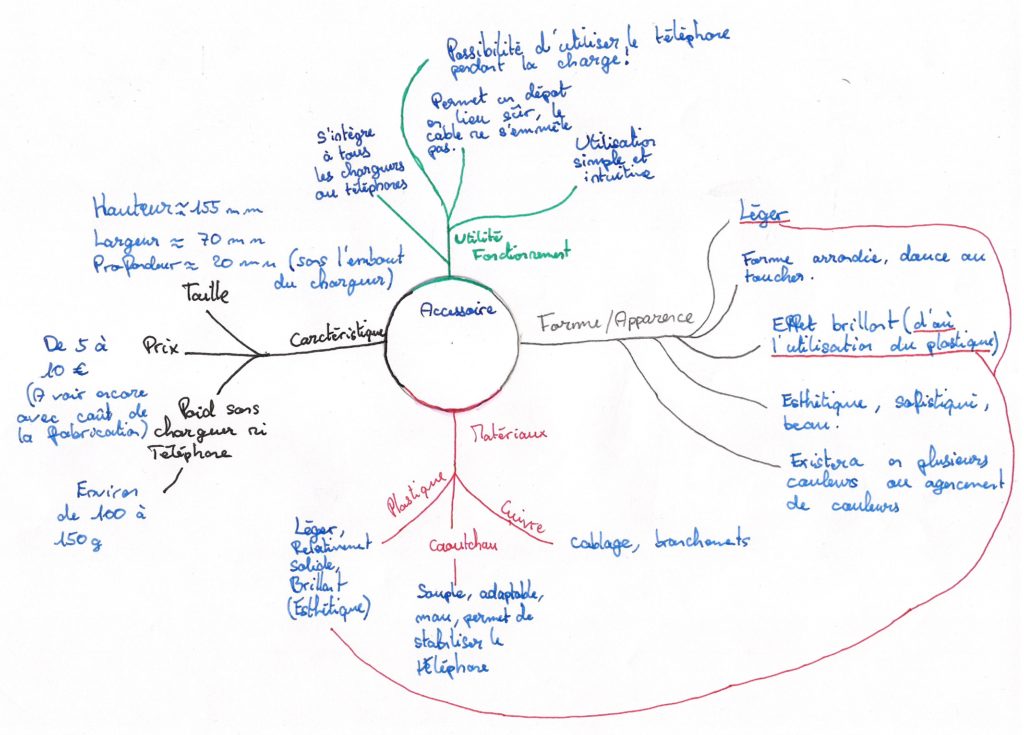 Possibilité d'utiliser le téléphone
pendant la charge!
Permet un dépot
en lieu sûr, le
cable ne s'emmêle
pas.
S'intègre
à tous
les chargeurs
ou téléphones
Utilisation
simple et
intuitive
Utilité
Fonctionnement
Hauteur ≈ 155 mm
Largeur ≈ 70 mm
Profondeur ≈ 20 mm (sans l'embout
du chargeur)
Taille
Caractéristique
Prix
De 5 à
10 €
(A voir encore
avec coût de
la fabrication)
Poid sans
chargeur ni
Téléphone
Environ
de 100 à
150 g
Accessoire
Forme/Apparence
Léger
Forme arrondie, douce au
toucher.
Effet brillant (d'où
l'utilisation du plastique)
Esthétique, sofistiqué,
beau.
Existera en plusieurs
couleurs ou agencement
de couleurs
Matériaux
Plastique
Léger,
Relativement
solide,
Brillant
(Esthétique)
Caoutchou
Souple, adaptable,
mou, permet de
stabiliser le
téléphone
Cuivre
cablage, branchements